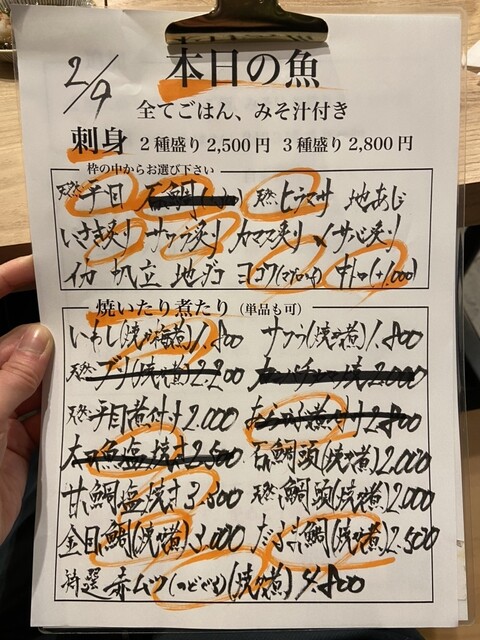 2/9
本日の魚
全てごはん、みそ汁付き
刺身 2種盛り2,500円 3種盛り2,800円
枠の中からお選び下さい
天然平目 石鯛 天然ヒラマサ 地あじ
いさき炙り サワラ炙り カマス炙り 〆サバ炙り
イカ 帆立 地ダコ ヨコワ(マグロ) 中トロ(+1,000)
焼いたり煮たり (単品も可)
いわし(焼or梅煮)1.800 サワラ(焼or煮)1.800
天然ブリ(焼or煮)2.200 カンパチカマ焼2.000
天然平目煮付け2.000 煮付け2.800
太刀魚塩焼き2.500 石鯛頭(焼or煮)2.000
甘鯛塩焼き3.500 天然鯛頭(焼or煮)2.000
金目鯛(焼or煮)3.000 鯛(焼or煮)2.500
特選 赤ムツ(のどぐろ)(焼or煮)4.800